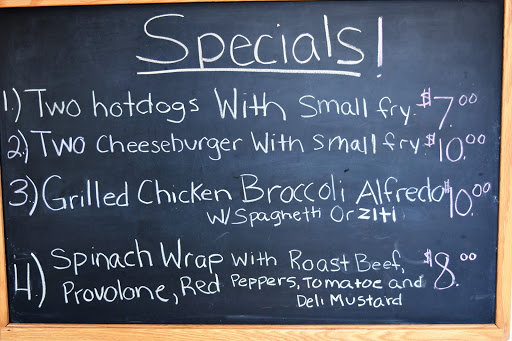 Specials!
1.) Two hotdogs With Small fry. $7.00
2.) Two Cheeseburger With Small fry. $10.00
3.) Grilled Chicken Broccoli Alfredo $10.00
W/Spaghetti Or ziti
4.) Spinach Wrap with Roast Beef, $8.00
Provolone, Red Peppers, Tomatoe and
Deli Mustard